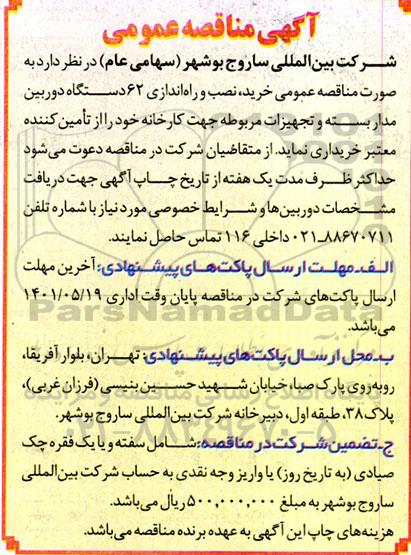 آگهی مناقصه عمومی
شرکت بین‌المللی ساروج بوشهر (سهامی عام) در نظر دارد به
صورت مناقصه عمومی خرید، نصب و راه‌اندازی ۶۲ دستگاه دوربین
مدار بسته و تجهیزات مربوطه جهت کارخانه خود را از تأمین کننده
معتبر خریداری نماید. از متقاضیان شرکت در مناقصه دعوت می‌شود
حداکثر ظرف مدت یک هفته از تاریخ چاپ آگهی جهت دریافت
مشخصات دوربین‌ها و شرایط خصوصی مورد نیاز با شماره تلفن
۰۲۱-۸۸۶۷۰۷۱۱ داخلی ۱۱۶ تماس حاصل نمایند.
الف- مهلت ارسال پاکت‌های پیشنهادی: آخرین مهلت
ارسال پاکت‌های شرکت در مناقصه پایان وقت اداری ۱۴۰۱/۰۵/۱۹
می‌باشد.
ب- محل ارسال پاکت‌های پیشنهادی: تهران، بلوار آفریقا،
روبه‌روی پارک صبا، خیابان شهید حسین بنیسی (فرزان غربی)،
پلاک ۳۸، طبقه اول، دبیرخانه شرکت بین‌المللی ساروج بوشهر.
ج- تضمین شرکت در مناقصه: شامل سفته و یا یک فقره چک
صیادی (به تاریخ روز) یا واریز وجه نقدی به حساب شرکت بین‌المللی
ساروج بوشهر به مبلغ ۵۰۰,۰۰۰,۰۰۰ ریال می‌باشد.
هزینه‌های چاپ این آگهی به عهده برنده مناقصه می‌باشد.
ParsNamadData